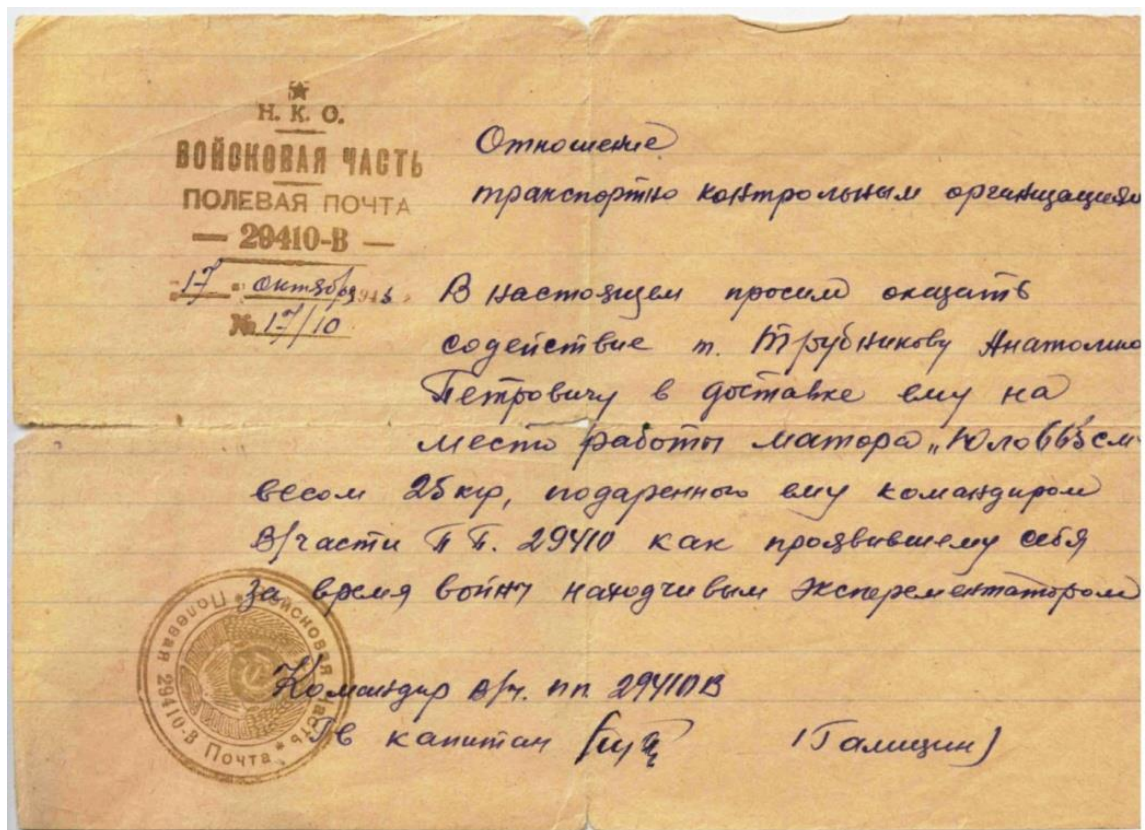 Н. К. О.
ВОЙСКОВАЯ ЧАСТЬ
ПОЛЕВАЯ ПОЧТА
— 29410-В —
17 октября 194
№ 17/10
Отношение
транспортно контрольным организациям
В настоящем просим оказать
содействие т. Трубникову Анатолию
Петровичу в доставке ему на
место работы матора
весом 25 кгр, подаренного ему командиром
В/части П П. 29410 как проявившему себя
за время войны находчивым эксперементатором
Командир в/ч. пп 29410В
Гв капитан (Галицин)
Войсковая часть * Полевая Почта * 29410-В